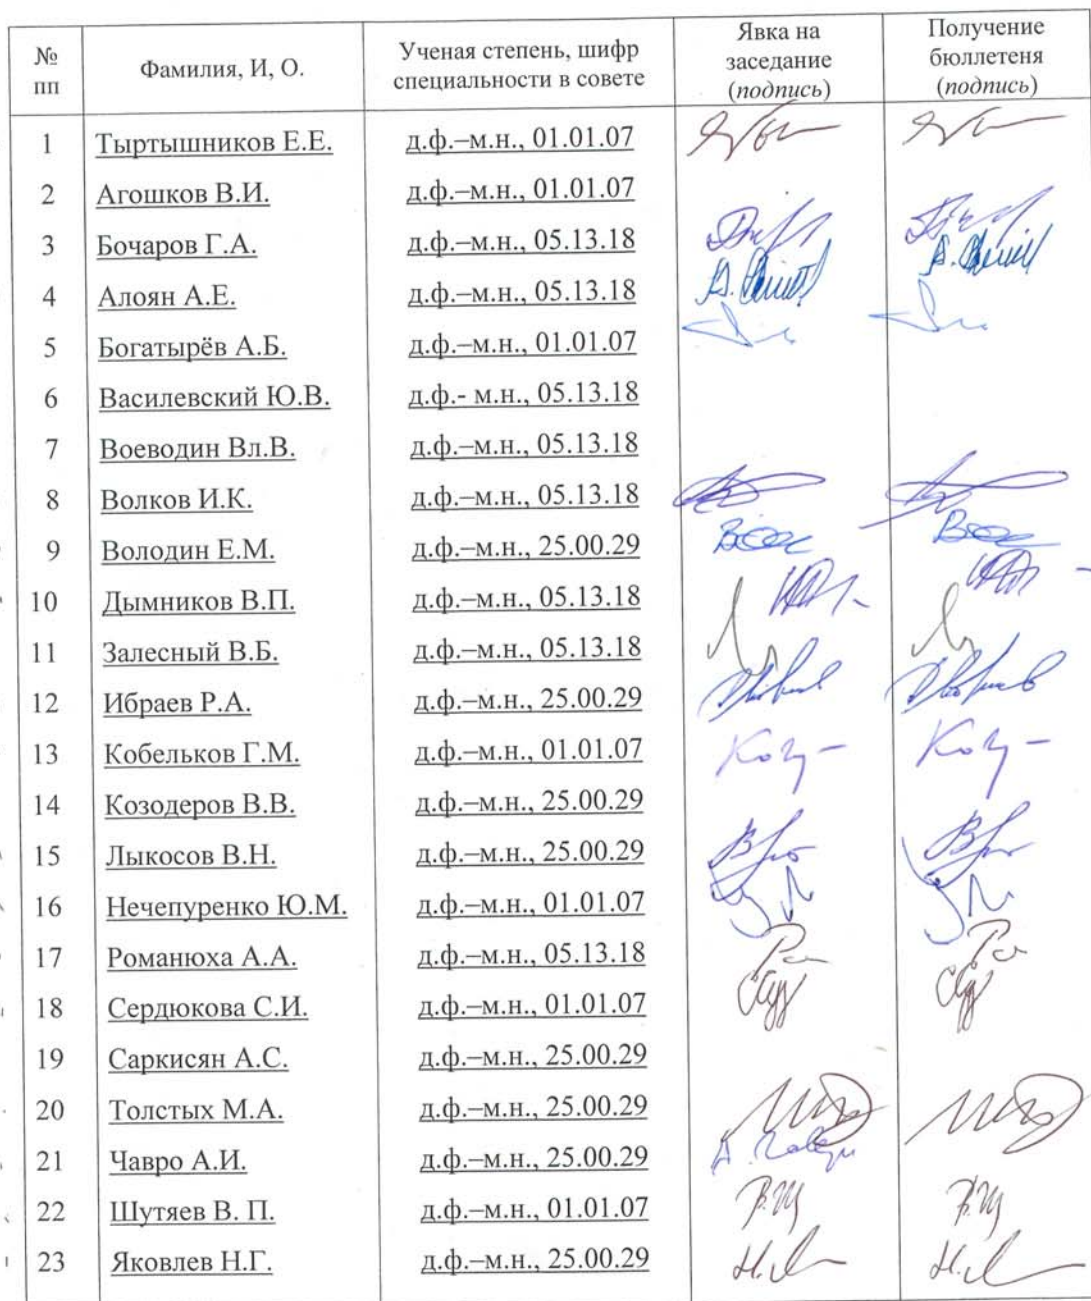 № пп Фамилия, И, О. Ученая степень, шифр специальности в совете Явка на заседание (подпись) Получение бюллетеня (подпись)
1 Тыртышников Е.Е. д.ф.–м.н., 01.01.07
2 Агошков В.И. д.ф.–м.н., 01.01.07
3 Бочаров Г.А. д.ф.–м.н., 05.13.18
4 Алоян А.Е. д.ф.–м.н., 05.13.18
5 Богатырёв А.Б. д.ф.–м.н., 01.01.07
6 Василевский Ю.В. д.ф.- м.н., 05.13.18
7 Воеводин Вл.В. д.ф.–м.н., 05.13.18
8 Волков И.К. д.ф.–м.н., 05.13.18
9 Володин Е.М. д.ф.–м.н., 25.00.29
10 Дымников В.П. д.ф.–м.н., 05.13.18
11 Залесный В.Б. д.ф.–м.н., 05.13.18
12 Ибраев Р.А. д.ф.–м.н., 25.00.29
13 Кобельков Г.М. д.ф.–м.н., 01.01.07
14 Козодеров В.В. д.ф.–м.н., 25.00.29
15 Лыкосов В.Н. д.ф.–м.н., 25.00.29
16 Нечепуренко Ю.М. д.ф.–м.н., 01.01.07
17 Романюха А.А. д.ф.–м.н., 05.13.18
18 Сердюкова С.И. д.ф.–м.н., 01.01.07
19 Саркисян А.С. д.ф.–м.н., 25.00.29
20 Толстых М.А. д.ф.–м.н., 25.00.29
21 Чавро А.И. д.ф.–м.н., 25.00.29
22 Шутяев В. П. д.ф.–м.н., 01.01.07
23 Яковлев Н.Г. д.ф.–м.н., 25.00.29